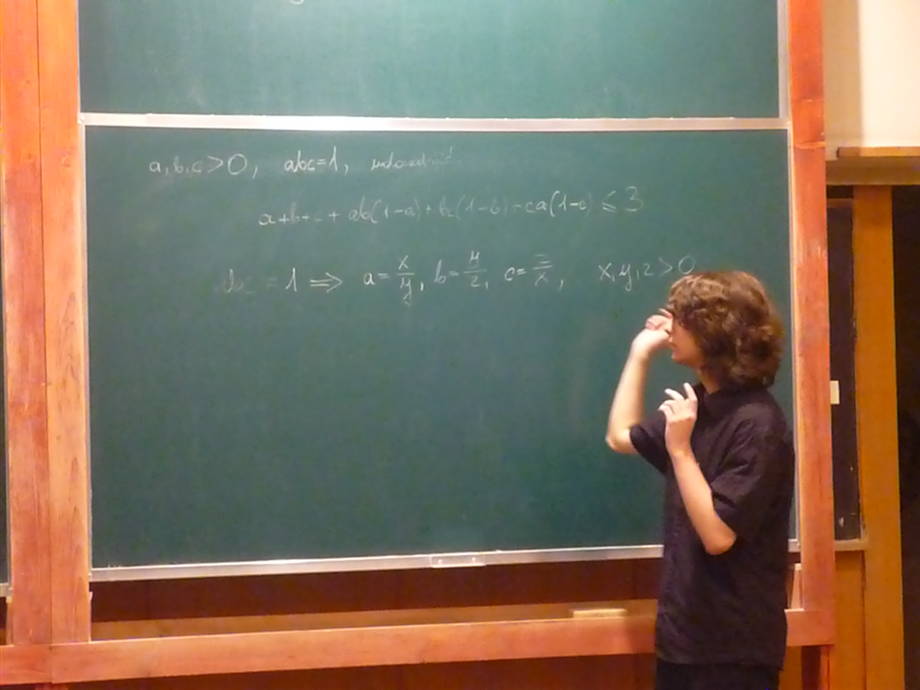 a,b,c>0, abc=1, udowodnić
a+b+c+ab(1-a)+bc(1-b)+ca(1-c)≤3
abc=1 ⇒ a=x/y, b=y/z, c=z/x, x,y,z>0